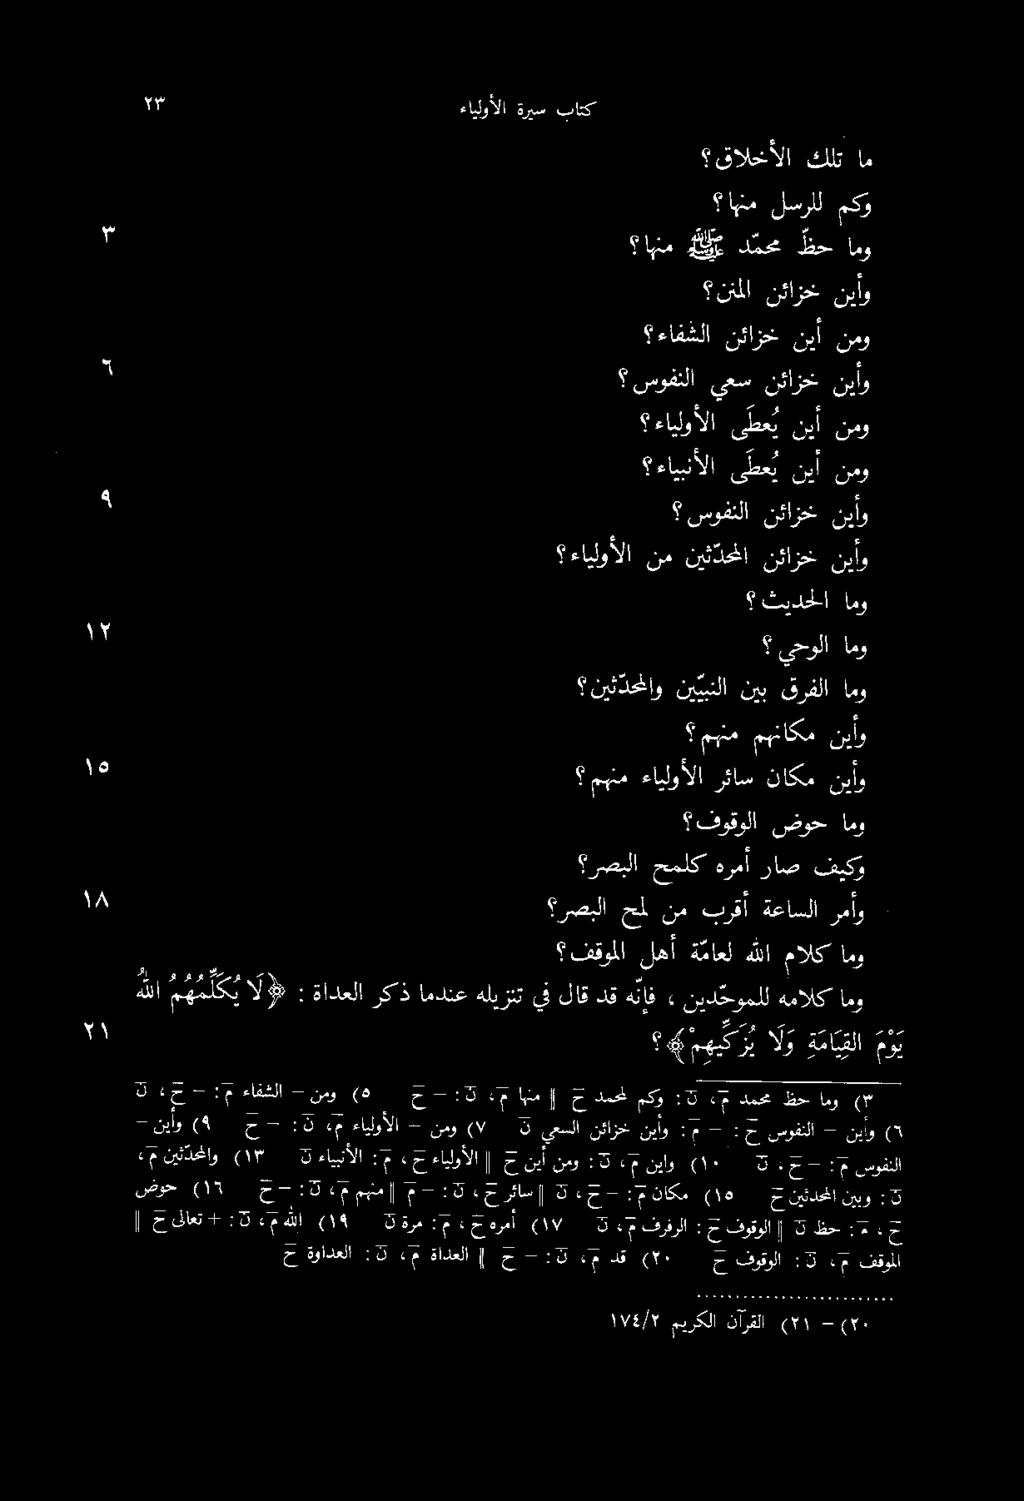 كتاب سيرة الأولياء ٢٣
ما تلك الأخلاق؟
وكم للرسل منها؟
وما حظّ محمّد ﷺ منها؟ ٣
وأين خزائن المنن؟
ومن أين خزائن الشفاء؟
وأين خزائن سعي النفوس؟ ٦
ومن أين يُعطَى الأولياء؟
ومن أين يُعطَى الأنبياء؟
وأين خزائن النفوس؟ ٩
وأين خزائن المحدّثين من الأولياء؟
وما الحديث؟
وما الوحي؟ ١٢
وما الفرق بين النبيّين والمحدّثين؟
وأين مكانهم منهم؟
وأين مكان سائر الأولياء منهم؟ ١٥
وما حوض الوقوف؟
وكيف صار أمره كلمح البصر؟
وأمر الساعة أقرب من لمح البصر؟ ١٨
وما كلام الله لعامّة أهل الموقف؟
وما كلامه للموحّدين ، فإنّه قد قال في تنزيله عندما ذكر العداة : ﴿لَا يُكَلِّمُهُمُ اللهُ
يَوْمَ القِيَامَةِ وَلَا يُزَكِّيهِمْ﴾ ؟ ٢١
٣) وما حظ محمد م، ن: وكم لمحمد ح ‖ منها م، ن: – ح ٥) ومن – الشفاء م: – ح، ن
٦) وأين – النفوس ح: – م: وأين خزائن السعي ن ٧) ومن – الأولياء م، ن: – ح ٩) وأين –
النفوس م: – ح، ن ١٠) واين م، ن: ومن أين ح ‖ الأولياء ح، م: الأنبياء ن ١٣) والمحدّثين م،
ن: وبين المحدثين ح ١٥) مكان م: – ح، ن ‖ سائر ح، ن: – م ‖ منهم م، ن: – ح ١٦) حوض
ح، م: حظ ن ‖ الوقوف ح: الرفرف م، ن ١٧) أمره ح، م: مرة ن ١٩) الله م، ن: + تعالى ح ‖
الموقف م، ن: الوقوف ح ٢٠) قد م، ن: – ح ‖ العداة م، ن: العداوة ح
٢٠) – ٢١) القرآن الكريم ١٧٤/٢